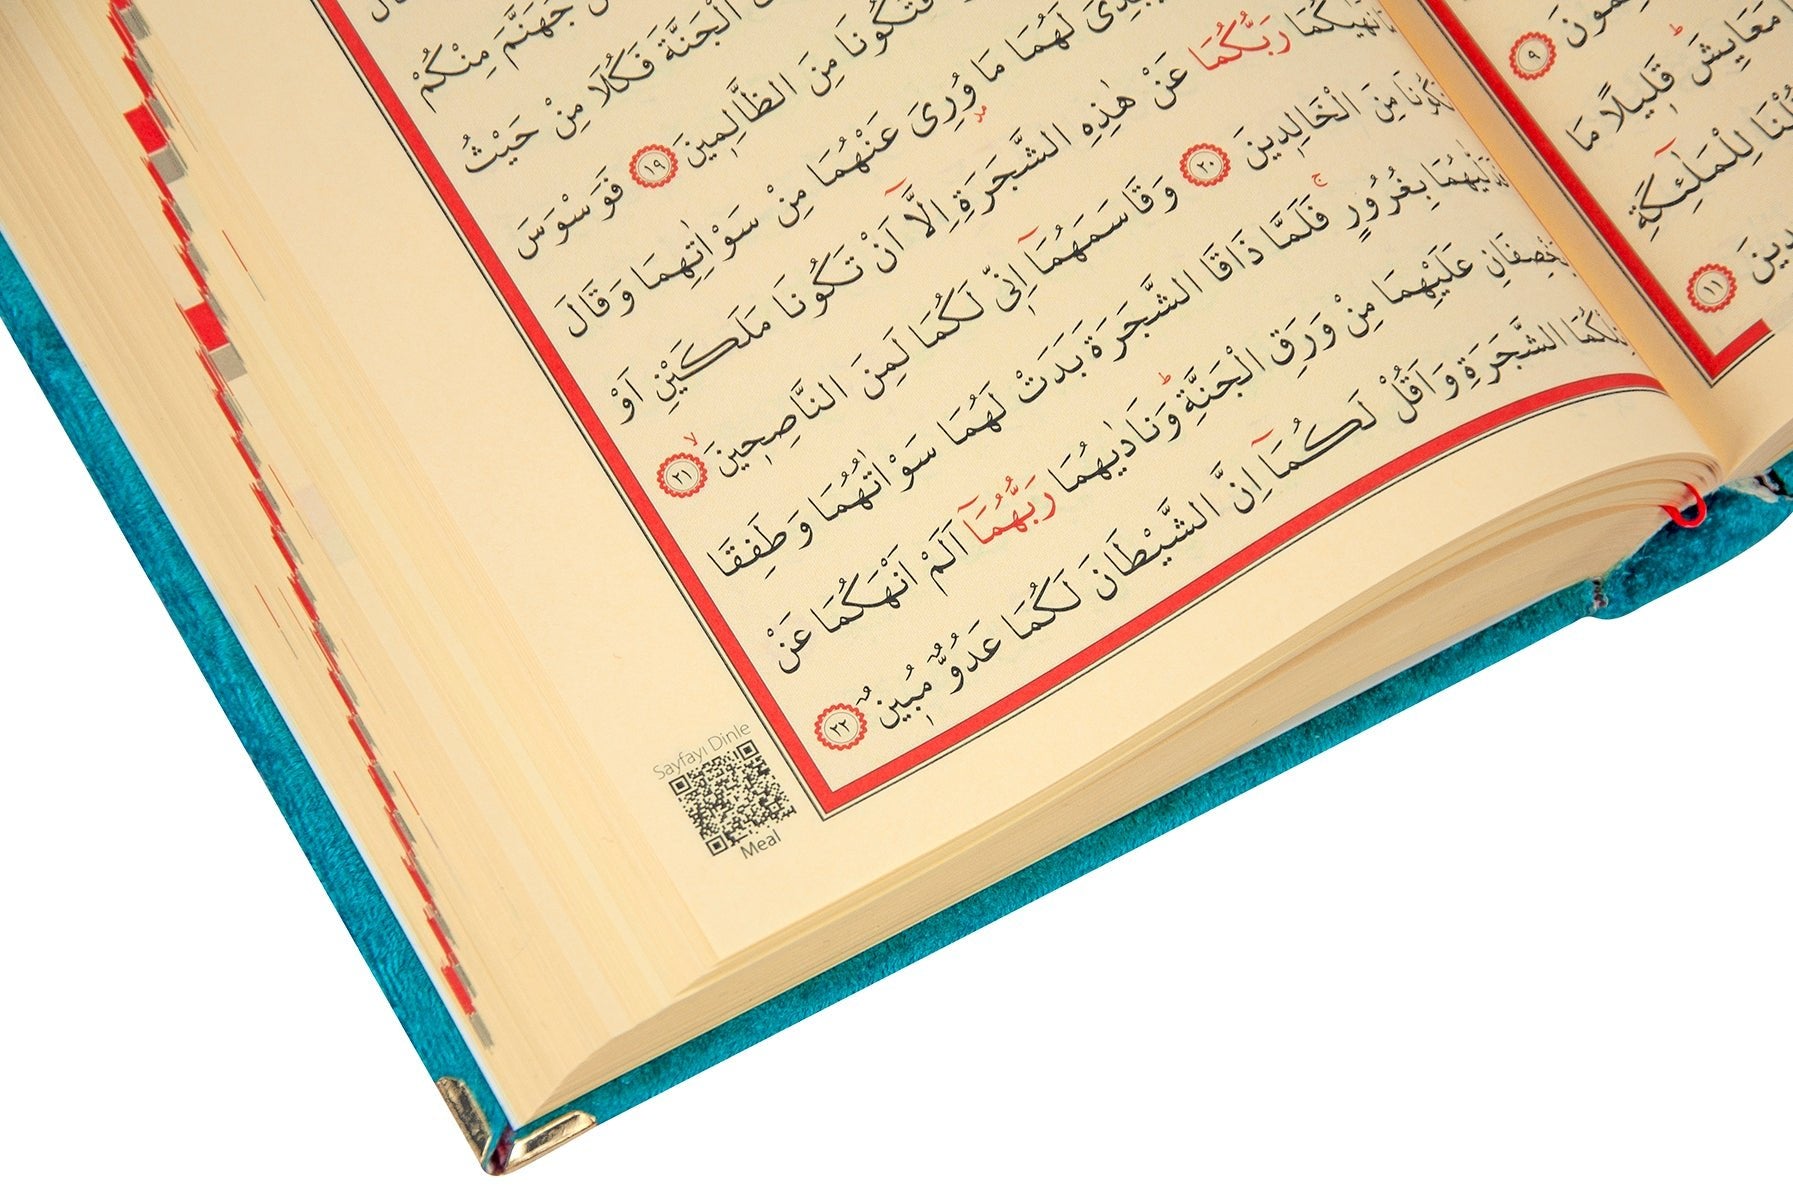 ٩
مَعَايِشَ قَلِيلًا مَا
لِلْمَلٰٓئِكَةِ
١١
جَهَنَّمَ مِنْكُمْ
الْجَنَّةَ فَكُلَا مِنْ حَيْثُ
فَتَكُونَا مِنَ الظَّالِم۪ينَ ١٩ فَوَسْوَسَ
لَهُمَا مَا وُرِيَ عَنْهُمَا مِنْ سَوْاٰتِهِمَا وَقَالَ
رَبُّكُمَا عَنْ هٰذِهِ الشَّجَرَةِ اِلَّٓا اَنْ تَكُونَا مَلَكَيْنِ اَوْ
مِنَ الْخَالِد۪ينَ ٢٠ وَقَاسَمَهُمَٓا اِنّ۪ي لَكُمَا لَمِنَ النَّاصِح۪ينَۙ ٢١
بِغُرُورٍۚ فَلَمَّا ذَاقَا الشَّجَرَةَ بَدَتْ لَهُمَا سَوْاٰتُهُمَا وَطَفِقَا
عَلَيْهِمَا مِنْ وَرَقِ الْجَنَّةِۜ وَنَادٰيهُمَا رَبُّهُمَٓا اَلَمْ اَنْهَكُمَا عَنْ
الشَّجَرَةِ وَاَقُلْ لَكُمَٓا اِنَّ الشَّيْطَانَ لَكُمَا عَدُوٌّ مُب۪ينٌ ٢٢
Sayfayı Dinle
Meal